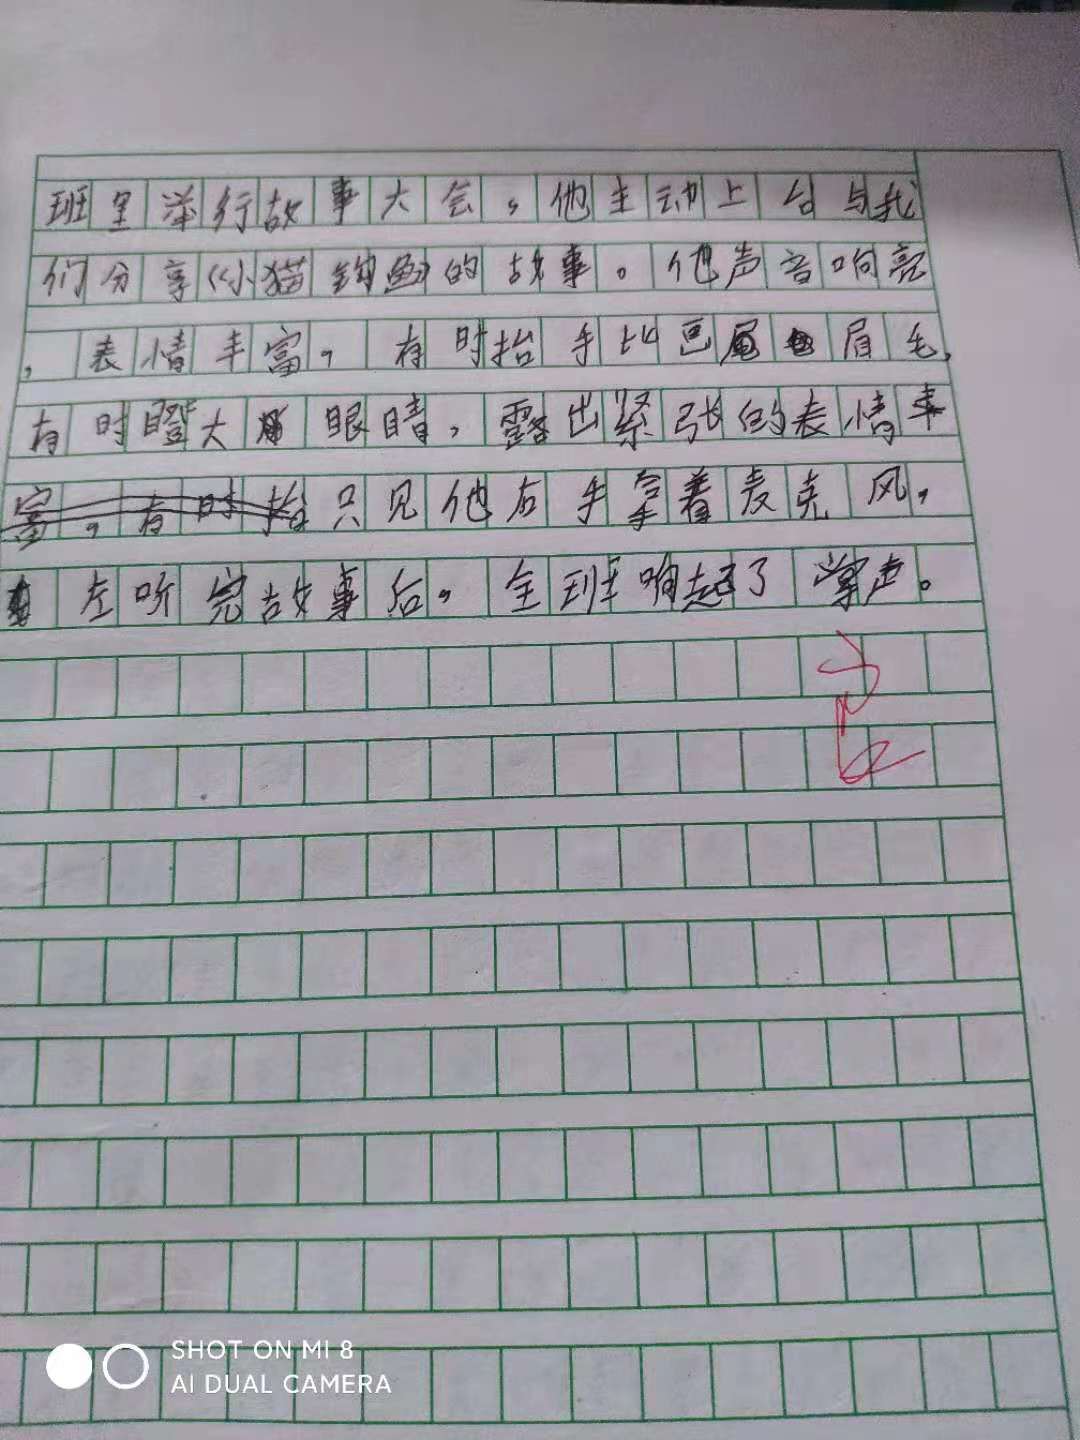 班里举行故事大会，他主动上台与我
们分享《小猫钓鱼》的故事。他声音响亮
，表情丰富，有时抬手比画眉毛，
有时瞪大眼睛，露出紧张的表情丰
富，有时抬只见他右手拿着麦克风，
左听完故事后，全班响起了掌声。
SHOT ON MI 8
AI DUAL CAMERA